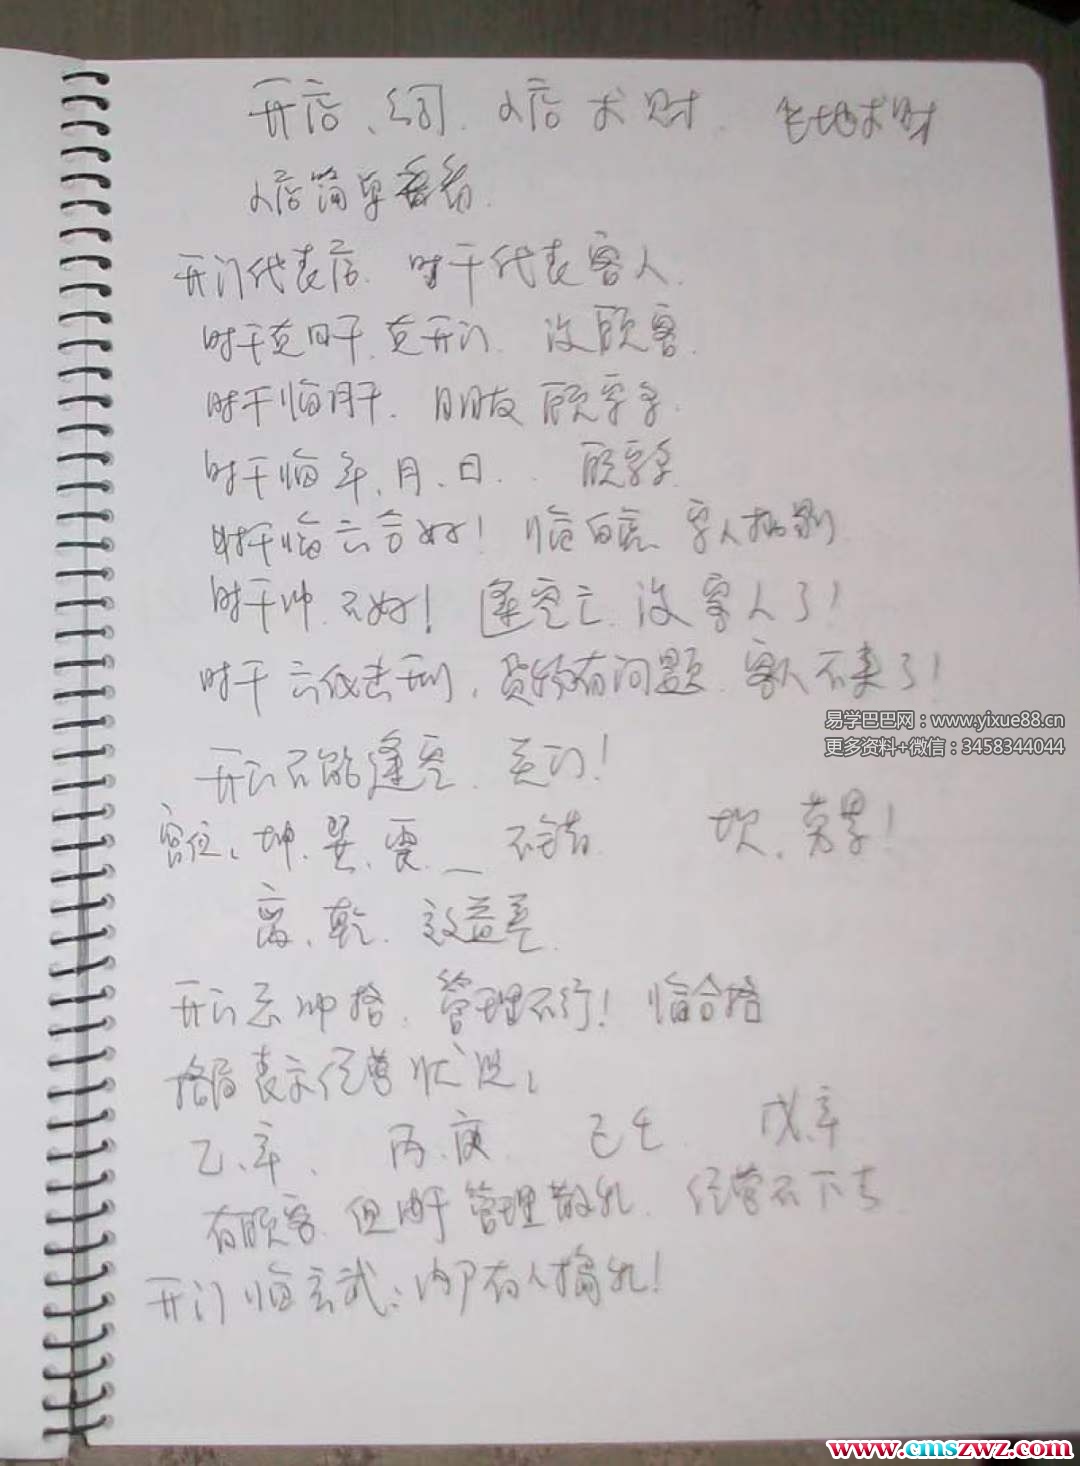 开店、公司、人店求财、宅地求财
人店简单看看.
开门代表店. 时干代表客人.
时干克日干.克开门. 没顾客.
时干临月干. 朋友顾客多.
时干临年、月、日.. 顾客多
时干临六合好! 临白虎 客人挑剔
时干冲 不好! 逢空亡. 没客人了!
时干六仪击刑, 货物有问题. 客人不来了!
易学巴巴网:www.yixue88.cn
更多资料+微信:3458344044
开门不能逢空. 关门!
宫位: 坤.巽.震. 不错. 坎.
离、乾. 效益差.
开门 冲 管理不行! 临合
格局表示经营状况:
乙、辛、 丙.庚 戊.辛
有顾客 但由于管理散乱. 经营不下去
开门临玄武:内部有人搞乱!
www.cmszwz.com